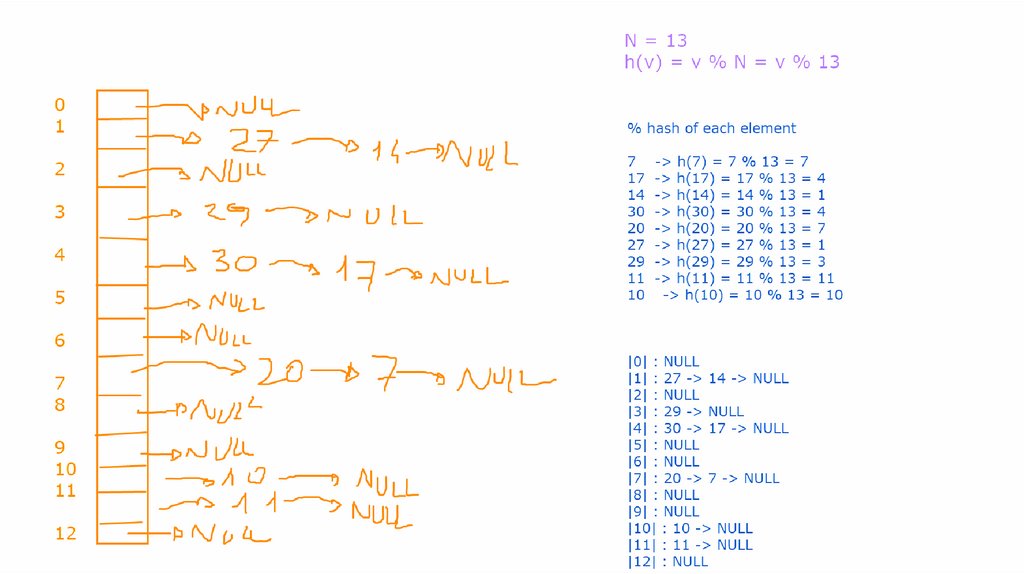 N = 13
h(v) = v % N = v % 13
0 NULL
1 27 14 NULL
2 NULL
3 29 NULL
4 30 17 NULL
5 NULL
6 NULL
7 20 7 NULL
8 NULL
9 NULL
10 10 NULL
11 11 NULL
12 NULL
% hash of each element
7 -> h(7) = 7 % 13 = 7
17 -> h(17) = 17 % 13 = 4
14 -> h(14) = 14 % 13 = 1
30 -> h(30) = 30 % 13 = 4
20 -> h(20) = 20 % 13 = 7
27 -> h(27) = 27 % 13 = 1
29 -> h(29) = 29 % 13 = 3
11 -> h(11) = 11 % 13 = 11
10 -> h(10) = 10 % 13 = 10
|0| : NULL
|1| : 27 -> 14 -> NULL
|2| : NULL
|3| : 29 -> NULL
|4| : 30 -> 17 -> NULL
|5| : NULL
|6| : NULL
|7| : 20 -> 7 -> NULL
|8| : NULL
|9| : NULL
|10| : 10 -> NULL
|11| : 11 -> NULL
|12| : NULL